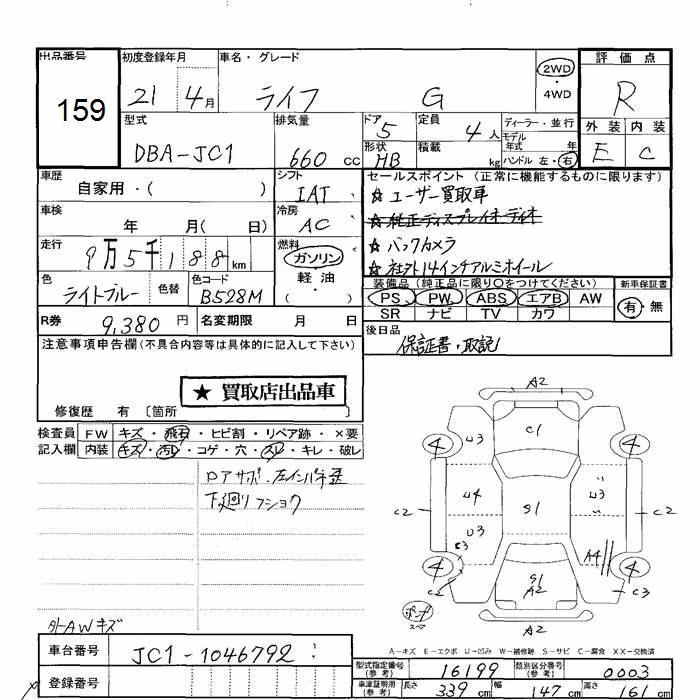 出品番号 初度登録年月 車名・グレード 評価点
159
21 4月 ライフ G 2WD・4WD R
外装 内装
E C
型式 排気量 ドア 定員 ディーラー・並行
DBA-JC1 660cc 5 4人 モデル年式 年
形状 積載
HB kg ハンドル 左・右
車歴 シフト セールスポイント (正常に機能するものに限ります)
自家用・( ) IAT ☆ユーザー買取車
車検 冷房 ☆純正ディスプレイオーディオ
年 月(日) AC ☆バックカメラ
走行 燃料 ☆社外14インチアルミホイール
9万5千188km ガソリン
軽油
・( )
色 色替 色コード 装備品(純正品に限り○をつけてください) 新車保証書
ライトブルー B528M PS PW ABS エアB AW 有・無
SR ナビ TV カワ
R券 9,380円 名変期限 月 日 後日品
注意事項申告欄(不具合内容等は具体的に記入して下さい) 保証書・取説
★ 買取店出品車
修復歴 有〔箇所 〕
検査員 FW キズ・飛石・ヒビ割・リペア跡・×要
記入欄 内装 キズ・汚レ・コゲ・穴・スレ・キレ・破レ
下廻リフショク
A2
C1
4 U3 4
C2 U4 S1 U3 C2
U3
4 A4 4
C2 S1 A2 C3
A2
外AWキズ
A-キズ E-エクボ U-凹み W-補修跡 S-サビ C-腐食 XX-交換済
車台番号 JC1-1046792
型式指定番号(参考) 16199 類別区分番号(参考) 0003
登録番号
車庫証明用(参考) 長さ 339cm 幅 147cm 高さ 161cm